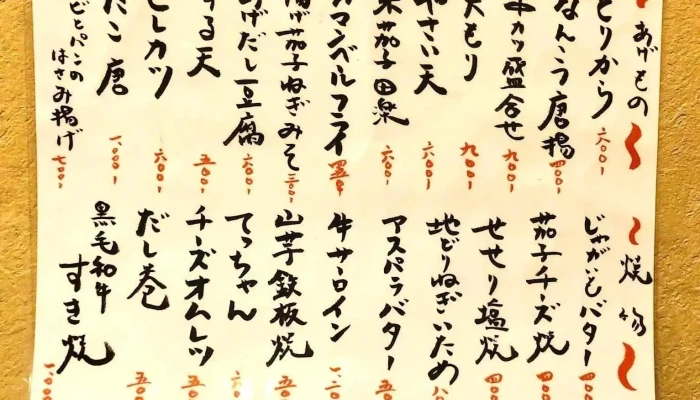 あげもの
とりから
六〇〇
なんこつ唐揚
四〇〇
串カツ盛合せ
九〇〇
天もり
九〇〇
やさい天
六〇〇
米茄子田楽
六〇〇
カマンベルフライ
四五〇
揚げ茄子ねぎみそ
三〇〇
あげだし豆腐
六〇〇
する天
五〇〇
ヒレカツ
六〇〇
たこ唐
一、〇〇〇
エビとパンの
はさみ揚げ
七〇〇
焼物
じゃがいもバター
四〇〇
茄子チーズ焼
四〇〇
せせり塩焼
四〇〇
地どりねぎいため
八〇
アスパラバター
五〇
牛サーロイン
一、二〇
山芋鉄板焼
五〇
てっちゃん
六〇
チーズオムレツ
五〇
だし巻
五〇
黒毛和牛
すき焼
一、〇〇〇